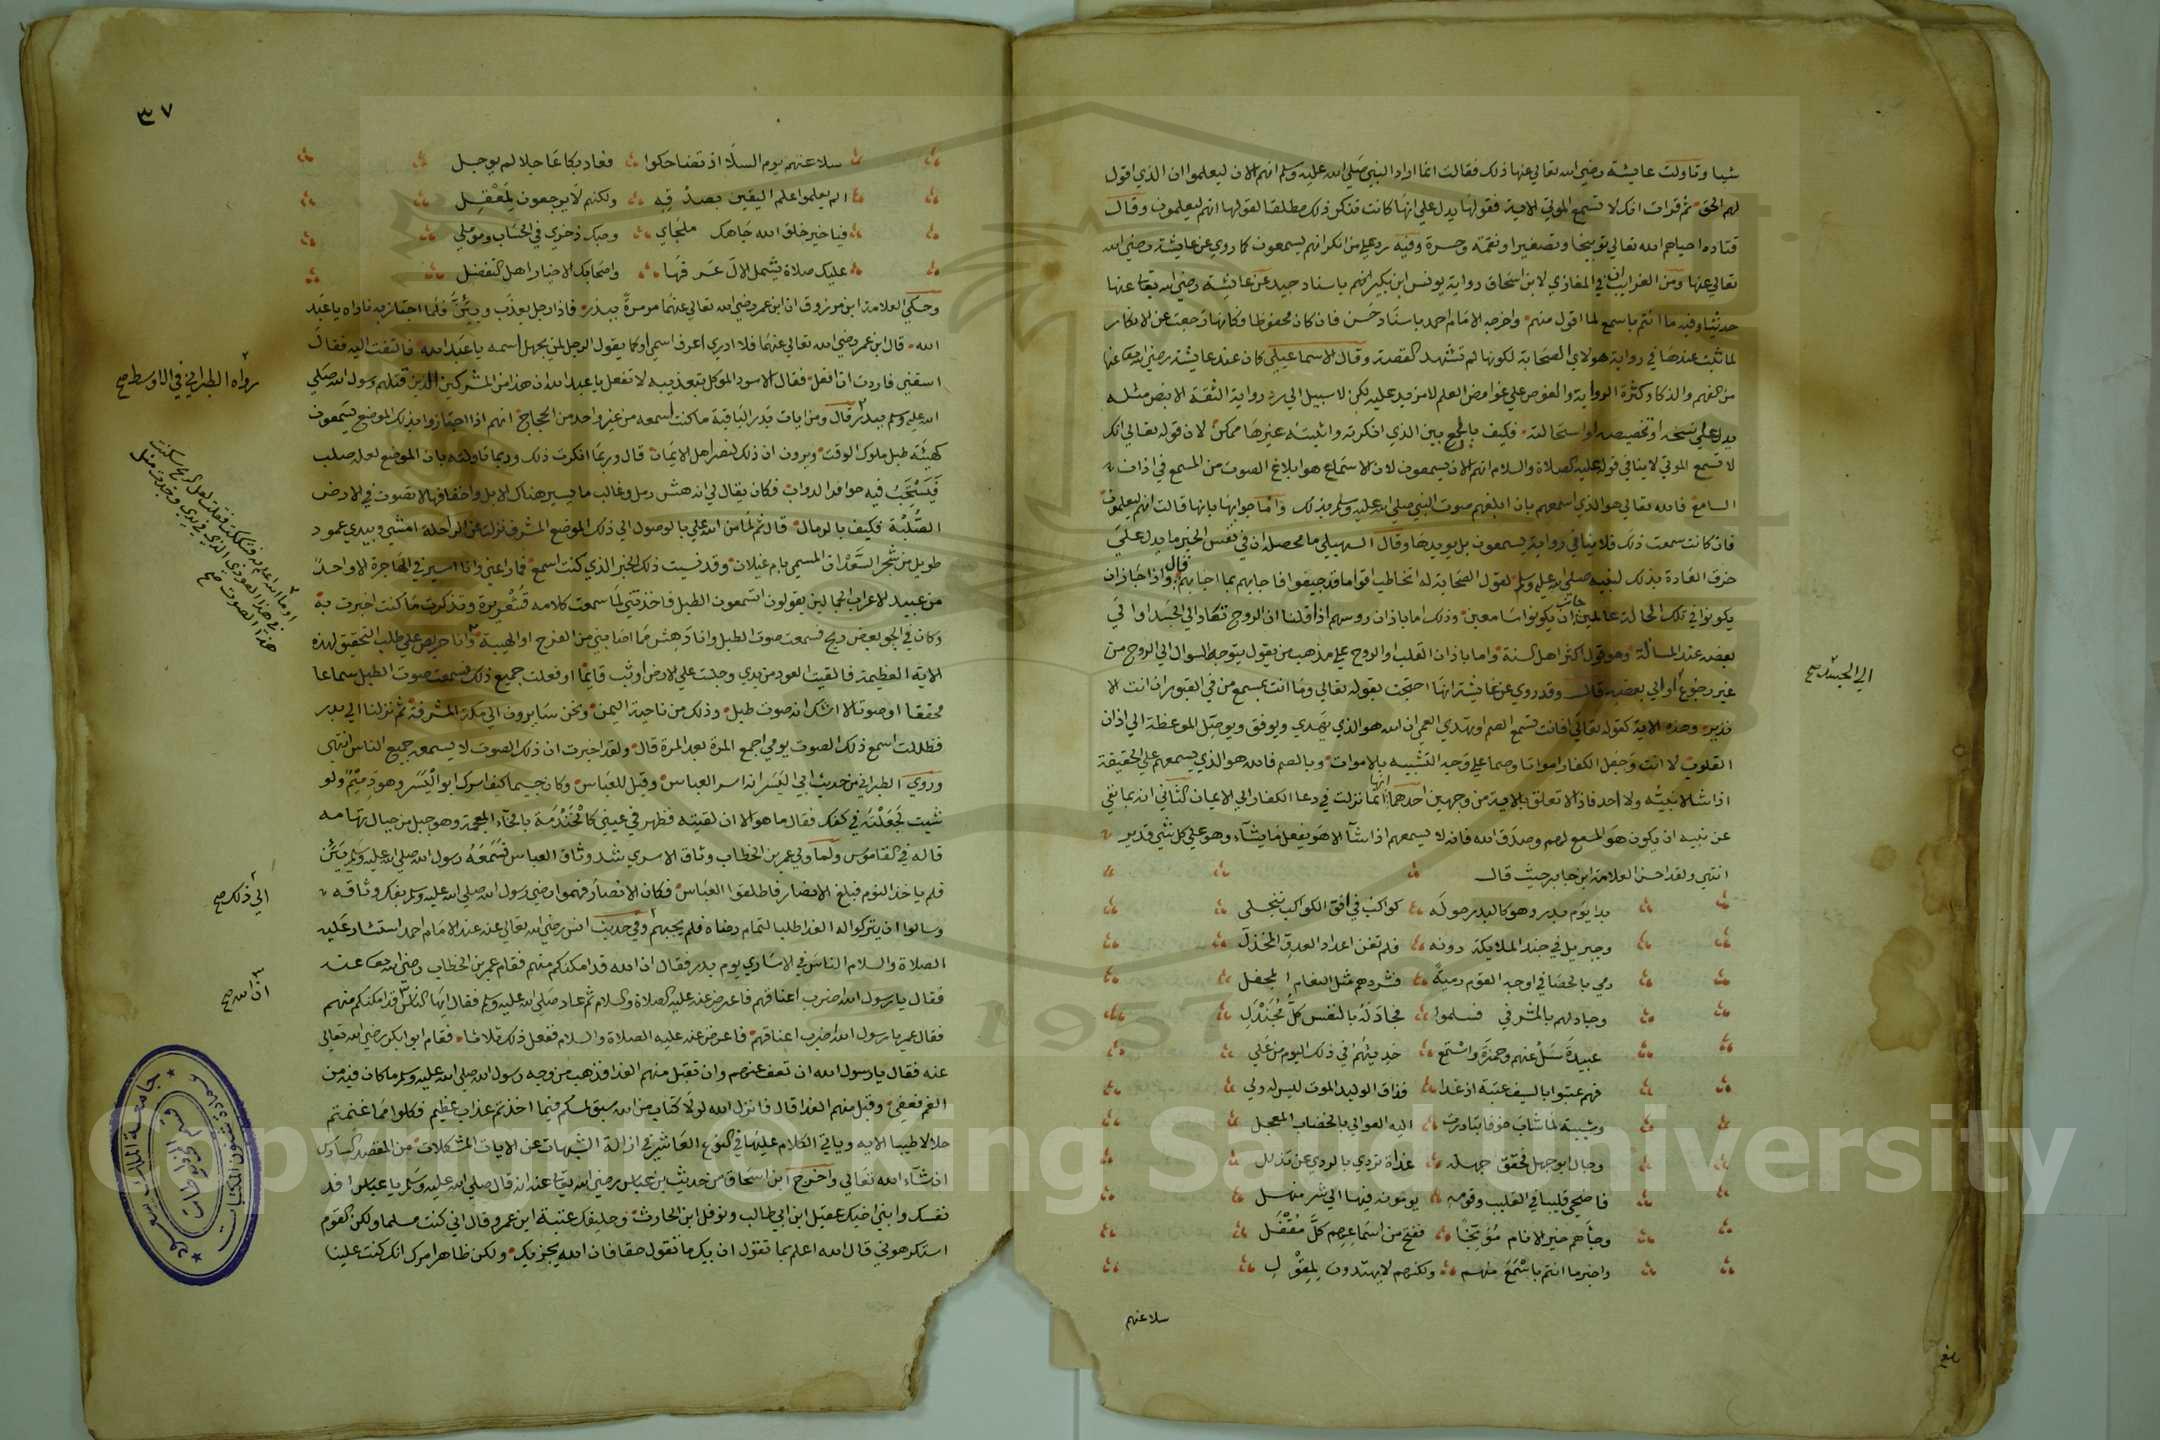 شيا وتاولت عايشة رضي الله تعالي عنها ذلك فقالت انما اراد النبي صلي الله عليه وسلم انهم الان ليعلموا ان الذي اقول
لهم الحق ثم قرات انك لا تسمع الموتي الاية فقولها يدل علي انها كانت تنكر ذلك مطلقا لقولها انهم ليعلمون وقال
قتاده احياهم الله تعالي توبيخا وتصغيرا ونقمة وحسرة وفيه رد علي من انكر انهم يسمعون كما روي عن عايشة رضي الله
تعالي عنها ومن الغرايب ان في المغازي لابن اسحاق رواية يونس ابن بكير باسناد جيد عن عايشة رضي الله تعا عنها
حديثا وفيه ما انتم باسمع لما اقول منهم واخرجه الامام احمد باسناد حسن فان كان محفوظا وكانها رجعت عن الانكار
لما ثبت عندها في رواية هولاي الصحابة لكونها لم تشهد القصة وقال الاسماعيلي كان عند عايشة رضي الله تعا عنها
من الفهم والذكا وكثرة الرواية والغوص علي غوامض العلم لامزيد عليه لكن لا سبيل الي رد رواية الثقة الا بنص مثله
يدل علي نسخه او تخصيصه او استحالته فكيف بالجمع بين الذي انكرته واثبته غيرها ممكن لان قوله تعالي انك
لا تسمع الموتي لا ينافي قوله عليه الصلاة والسلام انهم الان يسمعون لان الاسماع هو ابلاغ الصوت من المسمع في اذان
السامع فالله تعالي هو الذي اسمعهم بان ابلغهم صوت النبي صلي الله عليه وسلم بذلك واما جوابها بانها قالت انهم ليعلمون
فان كانت سمعت ذلك فلا ينافي رواية يسمعون بل يويدها وقال السهيلي ما محصله ان في نفس الخبر ما يدل علي
خرق العادة بذلك لنبيه صلي الله عليه وسلم لقول الصحابة له اتخاطب اقواما قد جيفوا فاجابهم بما اجابهم قال واذا جاز ان
يكونوا في تلك الحالة عالمين جاز ان يكونوا سامعين وذلك اما باذان روسهم اذا قلنا ان الروح تعاد الي الجسد او الي
بعضه عند المسالة وهو قول اكثر اهل السنة واما باذان القلب او الروح علي مذهب من يقول بتوجه السوال الي الروح من
غير رجوع او الي بعضه قال وقد روي عن عايشة انها احتجت بقوله تعالي وما انت بمسمع من في القبور ان انت الا
نذير وهذه الاية كقوله تعالي افانت تسمع الصم او تهدي العمي ان الله هو الذي يهدي ويوفق ويوصل الموعظة الي اذان
القلوب لا انت وجعل الكفار امواتا وصما علي وجه التشبيه بالاموات وبالصم فالله هو الذي يسمعهم علي الحقيقة
اذا شا لا نبيه ولا احد فاذا لا تعلق بالاية من وجهين احدهما انها انما نزلت في دعا الكفار الي الايمان الثاني انه انما نفي
عن نبيه ان يكون هو المسمع لهم وصدق الله فانه لا يسمعهم اذا شآ الا هو يفعل ما يشآء وهو علي كل شي قدير
انتهي ولقد احسن العلامة ابن جابر حيث قال
بدا يوم بدر وهو كالبدر حوله كواكب في افق الكواكب تنجلي
وجبريل في جند الملايكة دونه فلم تغن اعداد العدو المخذل
رمي بالحصا في اوجه القوم رمية فشردهم مثل النعام المجفل
وجادلهم بالمشرفي فسلموا فجاد له بالنفس كل مجندل
عبيدة سل عنهم وحمزة واستمع حديثهم في ذلك اليوم من علي
فهم عتبوا بالسيف عتبة اذ غدا فذاق الوليد الموت ليس له ولي
وشيبة لما شاب خوفا تبادرت اليه العوالي بالخضاب المعجل
وجال ابو جهل فحقق جهله غداة تردي بالردي عن تذلل
فاضحي قليبا في القليب وقومه يومونه فيها الي شر منهل
وجاهم خير الانام موبخا ففتح من اسماعهم كل مقفل
واخبر ما انتم باسمع منهم ولكنهم لا يهتدون لمقول
سلا عنهم
الي الجسد صح
بلغ
٣٧
سلا عنهم يوم السلا اذ تضاحكوا فعاد بكاء عاجلا لم يوجل
الم يعلموا علم اليقين بصدقه ولكنهم لا يرجعون لمعقل
فيا خير خلق الله جاهك ملجاي وحبك ذخري في الحساب ومويلي
عليك صلاة تشمل الآل عرفها واصحابك الاخيار اهل التفضل
وحكي العلامة ابن مرزوق ان ابن عمر رضي الله تعالي عنهما مر مرة ببدر فاذا رجل يعذب ويئن فلما اجتاز به ناداه يا عبد
الله قال ابن عمر رضي الله تعالي عنهما فلا ادري اعرف اسمي او كما يقول الرجل لمن يجهل اسمه يا عبد الله فالتفت اليه فقال
اسقني فاردت ان افعل فقال الاسود الموكل بتعذيبه لا تفعل يا عبد الله ان هذا من المشركين الذين قتلهم رسول الله صلي
الله عليه وسلم ببدر قال ومن ايات بدر الباقية ما كنت اسمعه من غير واحد من الحجاج انهم اذا اجتازوا بذلك الموضع يسمعون
كهيئة طبل ملوك الوقت ويرون ان ذلك لنصر اهل الايمان قال وربما انكرت ذلك وربما تاولته بان الموضع لعله صلب
فيستجب فيه حوافر الدواب فكان يقال لي انه هش رمل وغالب ما يسير هناك الابل واخفافها لا تصوت في الارض
الصلبة فكيف بالرمال قال ثم لما من الله علي بالوصول الي ذلك الموضع المشرف نزلت عن الراحلة امشي وبيدي عمود
طويل من شجر السعدان المسمي بام غيلان وقد نسيت ذلك الخبر الذي كنت اسمع فما راعني وانا اسير في الهاجرة الا واحد
من عبيد الاعراب الجمالين يقولون اتسمعون الطبل فاخذتني لما سمعت كلامه قشعريرة وتذكرت ما كنت اخبرت به
وكان في الجو بعض ريح فسمعت صوت الطبل وانا دهش مما اصابني من الفرح او الهيبة وانا حريص علي طلب التحقيق لهذه
الاية العظيمة فالقيت العود من يدي وجلست علي الارض او ثبت قايما او فعلت جميع ذلك فسمعت صوت الطبل سماعا
محققا او صوتا لا اشك انه صوت طبل وذلك من ناحية اليمن ونحن سايرون الي مكة المشرفة ثم نزلنا الي بدر
فظللت اسمع ذلك الصوت يومي اجمع المرة بعد المرة قال ولقد اخبرت ان ذلك الصوت لا يسمعه جميع الناس انتهي
وروي الطبراني من حديث ابي اليسر انه اسر العباس وقيل للعباس وكان جسيما كيف اسرك ابو اليسر وهو دميم ولو
شيت لجعلته في كفك فقال ما هو الا ان لقيته فظهر في عيني كالخندمة بالخآء المعجمة وهو جبل من جبال تهامه
قاله في القاموس ولما ولي عمر بن الخطاب وثاق الاسري شد وثاق العباس فسمعه رسول الله صلي الله عليه وسلم يئن
فلم ياخذ النوم فبلغ الانصار فاطلقوا العباس فكان الانصار فهموا رضي رسول الله صلي الله عليه وسلم بفك وثاقه
وسالوا ان يتركوا له الفدا طلبا لتمام رضاه فلم يجبهم وفي حديث انس رضي الله تعالي عنه عند الامام احمد استشار عليه
الصلاة والسلام الناس في الاساري يوم بدر فقال ان الله قد امكنكم منهم فقام عمر بن الخطاب رضي الله تعا عنه
فقال يا رسول الله اضرب اعناقهم فاعرض عنه عليه الصلاة والسلام ثم عاد صلي الله عليه وسلم فقال ايها الناس قد امكنكم منهم
فقال عمر يا رسول الله اضرب اعناقهم فاعرض عنه عليه الصلاة والسلام ففعل ذلك ثلاثا فقام ابو بكر رضي الله تعالي
عنه فقال يا رسول الله ان تعف عنهم وان تقبل منهم الفدا فذهب من وجه رسول الله صلي الله عليه وسلم ما كان فيه من
الغم فعفي وقبل منهم الفدا قال فانزل الله لولا كتاب من الله سبق لمسكم فيما اخذتم عذاب عظيم فكلوا مما غنمتم
حلالا طيبا الايه وياتي الكلام عليها في النوع العاشر في ازالة الشبهات عن الايات المشكلات من المقصد السادس
ان شآء الله تعالي واخرج ابن اسحاق من حديث ابن عباس رضي الله تعا عنه انه قال صلي الله عليه وسلم يا عباس افد
نفسك وابني اخيك عقيل ابن ابي طالب ونوفل ابن الحارث وحليفك عتبة ابن عمرو قال اني كنت مسلما ولكن القوم
استكرهوني قال الله اعلم بما تقول ان يك ما تقول حقا فان الله يجزيك ولكن ظاهر امرك انك كنت علينا
رواه الطبراني في الاوسط صح
الي ذلك صح
ان الله صح
جامعة الملك سعود
عمادة شؤون المكتبات
قسم المخطوطات
Copyright © King Saud University
1957